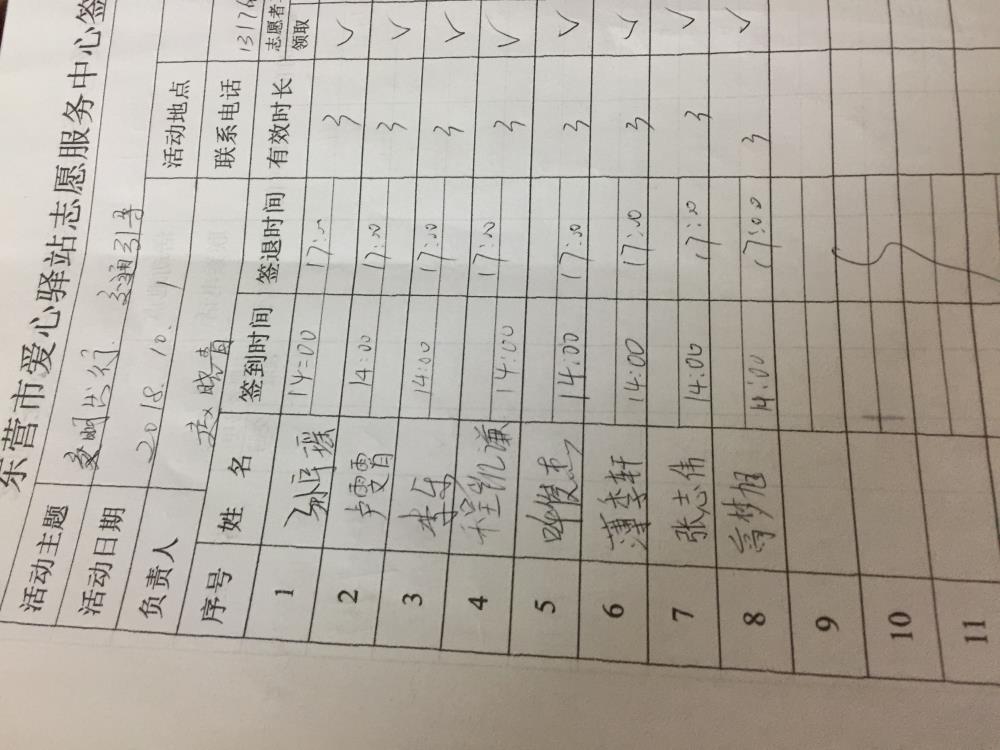 东营市爱心驿站志愿服务中心签
活动主题 文明出行 交通引导
活动日期 2018.10.1 活动地点
负责人 赵晓青 联系电话 13176
序号 姓 名 签到时间 签退时间 有效时长 志愿者 领取
1 孙平瑶 14:00 17:00 3 ✓
2 卢雯霄 14:00 17:00 3 ✓
3 李乐 14:00 17:00 3 ✓
4 程凯谦 14:00 17:00 3 ✓
5 俊杰 14:00 17:00 3 ✓
6 薄李轩 14:00 17:00 3 ✓
7 张志伟 14:00 17:00 3 ✓
8 高梦旭 14:00 17:00 3 ✓
9
10
11